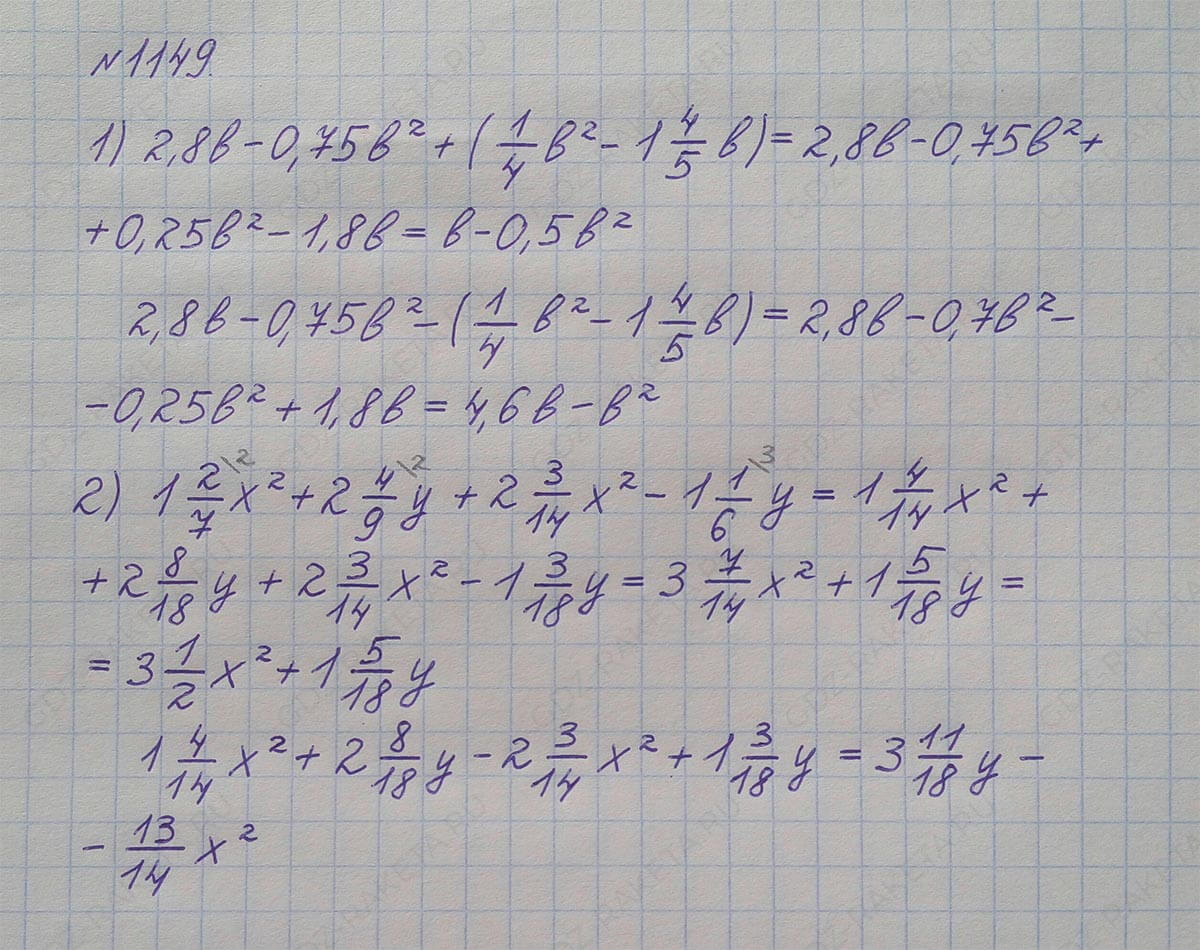 №1149.
1) 2,8в-0,75в²+(1/4 в²-1 4/5 в)=2,8в-0,75в²+
+0,25в²-1,8в=в-0,5в²
2,8в-0,75в²-(1/4 в²-1 4/5 в)=2,8в-0,7в²-
-0,25в²+1,8в=4,6в-в²
2) 1 2/7\² x²+2 4/9\² y+2 3/14 x²-1 1/6\³ y=1 4/14 x²+
+2 8/18 y+2 3/14 x²-1 3/18 y=3 7/14 x²+1 5/18 y=
=3 1/2 x²+1 5/18 y
1 4/14 x²+2 8/18 y-2 3/14 x²+1 3/18 y=3 11/18 y-
-13/14 x²